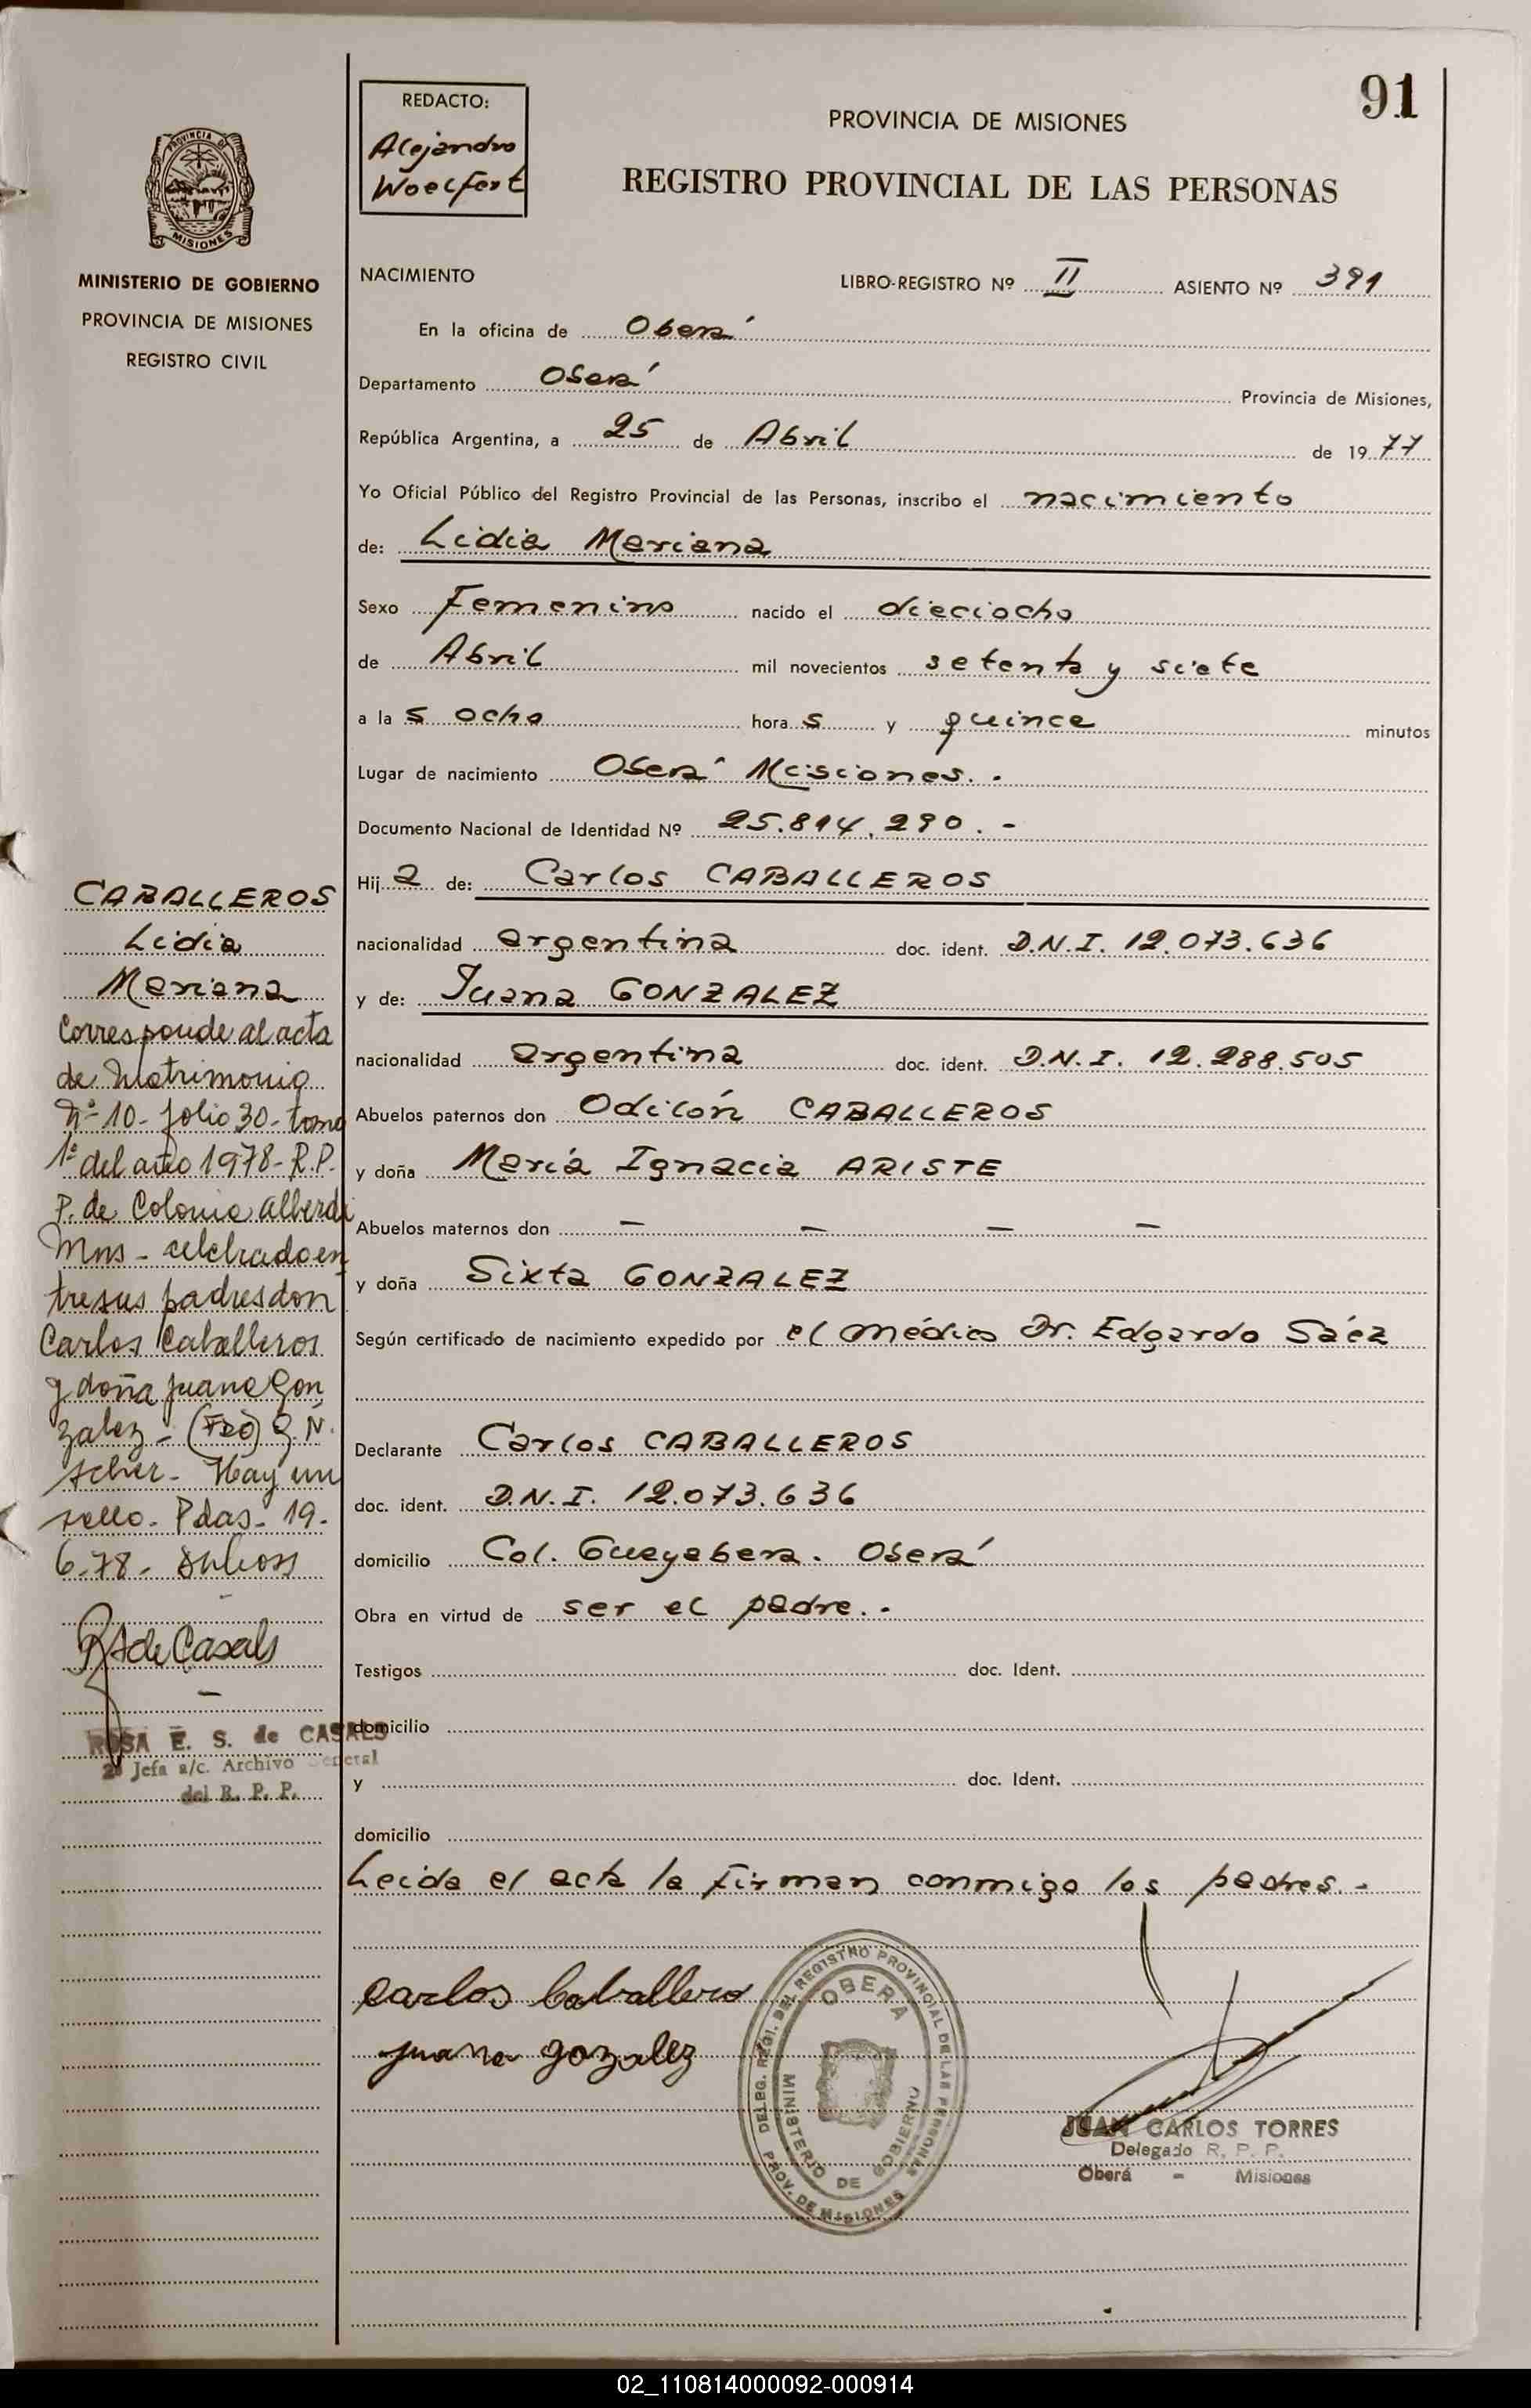 91
REDACTO:
Alejandro
Woelfert
PROVINCIA DE MISIONES
REGISTRO PROVINCIAL DE LAS PERSONAS
PROVINCIA DE
MISIONES
MINISTERIO DE GOBIERNO
PROVINCIA DE MISIONES
REGISTRO CIVIL
NACIMIENTO LIBRO-REGISTRO Nº II ASIENTO Nº 391
En la oficina de Oberá
Departamento Oberá Provincia de Misiones,
República Argentina, a 25 de Abril de 1977
Yo Oficial Público del Registro Provincial de las Personas, inscribo el nacimiento
de: Lidia Mariana
Sexo Femenino nacido el dieciocho
de Abril mil novecientos setenta y siete
a las ocho horas y quince minutos
Lugar de nacimiento Oberá Misiones.-
Documento Nacional de Identidad Nº 25.814.290.-
Hija de: Carlos CABALLEROS
nacionalidad argentina doc. ident. D.N.I. 12.073.636
y de: Juana GONZALEZ
nacionalidad argentina doc. ident. D.N.I. 12.288.505
Abuelos paternos don Odilón CABALLEROS
y doña María Ignacia ARISTE
Abuelos maternos don — — — —
y doña Sixta GONZALEZ
Según certificado de nacimiento expedido por el médico Dr. Edgardo Sáez
Declarante Carlos CABALLEROS
doc. ident. D.N.I. 12.073.636
domicilio Col. Guayabera. Oberá
Obra en virtud de ser el padre.-
Testigos doc. Ident.
domicilio
y doc. Ident.
domicilio
Leida el acta la firman conmigo los padres.-
Carlos Caballero
Juana gozalez
DELEG. REGI. DEL REGISTRO PROVINCIAL DE LAS PERSONAS
PROV. DE MISIONES
OBERA
MINISTERIO DE GOBIERNO
JUAN CARLOS TORRES
Delegado R. P. P.
Oberá - Misiones
CABALLEROS
Lidia
Mariana
Corresponde al acta
de Matrimonio
Nº 10- folio 30- tomo
1º del año 1978- R.P.
P. de Colonia Alberdi
Mns - celebrado en
tre sus padres don
Carlos Caballeros
y doña Juana Gon
zalez - (FDO)
Hay un
sello. Pdas. 19.
6.78.
R S de Casals
ROSA E. S. de CASALS
2º Jefa a/c. Archivo General
del R. P. P.
02_110814000092-000914